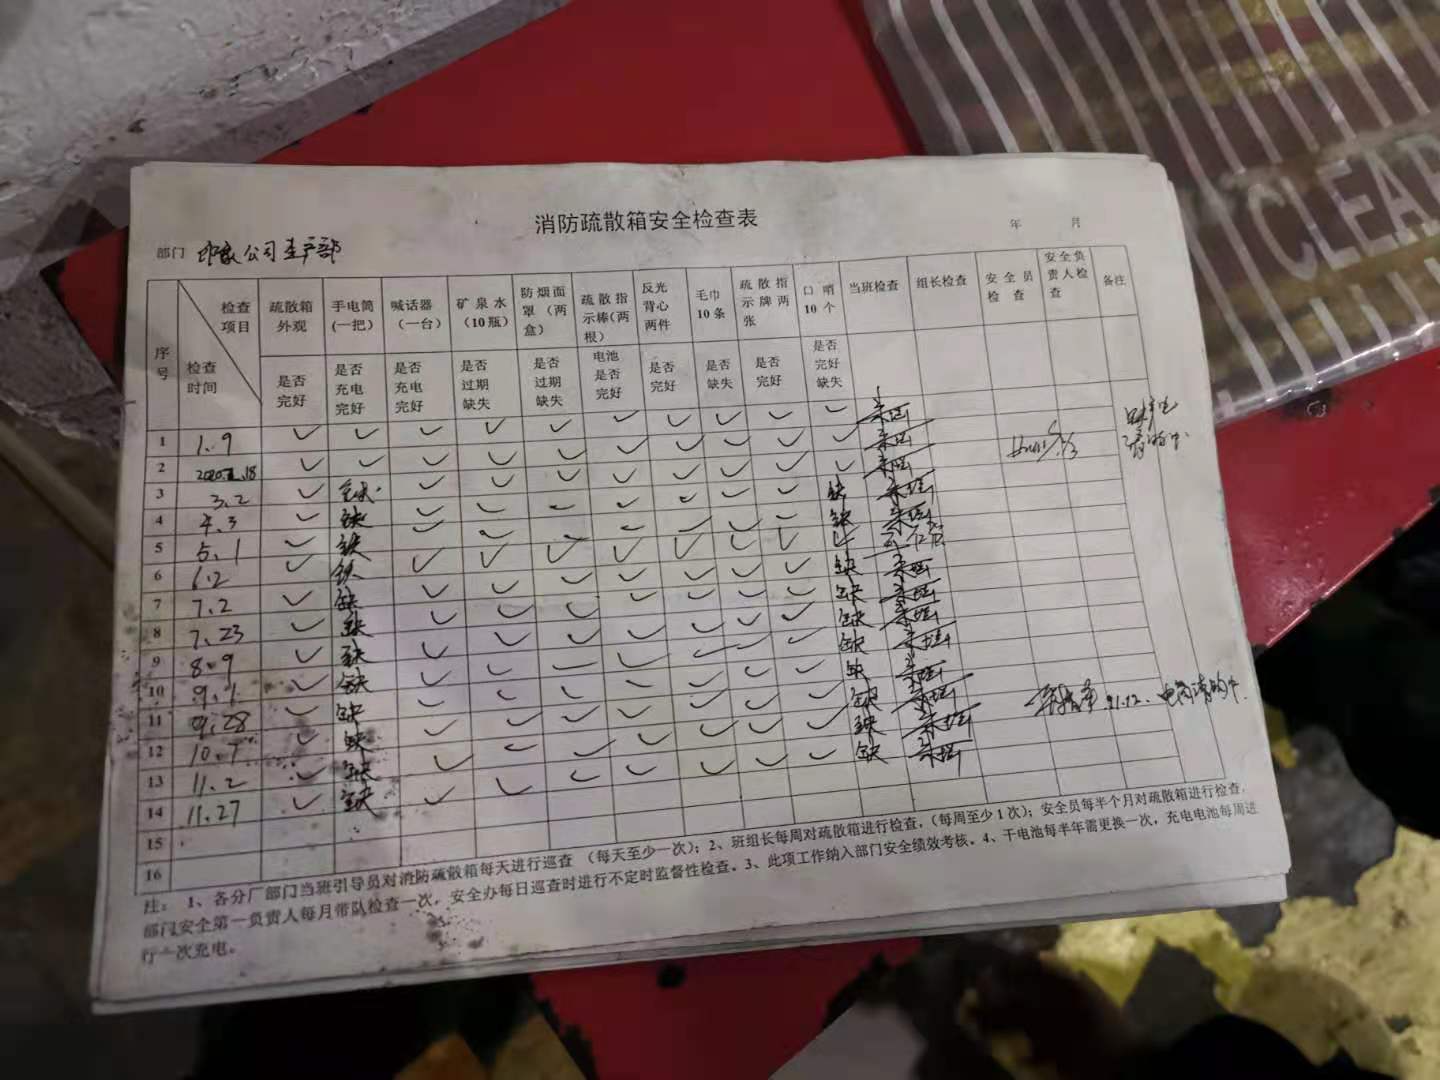 消防疏散箱安全检查表
部门 印象公司生产部 年 月
序号 检查项目 检查时间 疏散箱外观 手电筒(一把) 喊话器(一台) 矿泉水(10瓶) 防烟面罩(两盒) 疏散指示棒(两根) 反光背心两件 毛巾10条 疏散指示牌两张 口哨10个 当班检查 组长检查 安全员检查 安全负责人检查 备注
是否完好 是否充电完好 是否充电完好 是否过期缺失 是否过期缺失 电池是否完好 是否完好 是否缺失 是否完好 是否完好缺失
1 1.9 ✓ ✓ ✓ ✓ ✓ ✓ ✓ ✓ ✓ ✓
2 ✓ ✓ ✓ ✓ ✓ ✓ ✓ ✓ ✓ ✓
3 3.2 ✓ 缺 ✓ ✓ ✓ ✓ ✓ ✓ ✓ 缺
4 4.3 ✓ 缺 ✓ ✓ ✓ ✓ ✓ ✓ ✓ 缺
5 5.1 ✓ 缺 ✓ ✓ ✓ ✓ ✓ ✓ ✓ ✓
6 6.2 ✓ 缺 ✓ ✓ ✓ ✓ ✓ ✓ ✓ 缺
7 7.2 ✓ 缺 ✓ ✓ ✓ ✓ ✓ ✓ ✓ 缺
8 7.23 ✓ 缺 ✓ ✓ ✓ ✓ ✓ ✓ ✓ 缺
9 8.9 ✓ 缺 ✓ ✓ ✓ ✓ ✓ ✓ ✓ 缺
10 9.1 ✓ 缺 ✓ ✓ ✓ ✓ ✓ ✓ ✓ 缺
11 9.28 ✓ 缺 ✓ ✓ ✓ ✓ ✓ ✓ ✓ 缺
12 10.7 ✓ 缺 ✓ ✓ ✓ ✓ ✓ ✓ ✓ 缺
13 11.2 ✓ 缺 ✓ ✓ ✓ ✓ ✓ ✓ ✓ 缺
14 11.27 ✓ 缺 ✓
15
16
注： 1、各分厂部门当班引导员对消防疏散箱每天进行巡查（每天至少一次）；2、班组长每周对疏散箱进行检查，（每周至少1次）；安全员每半个月对疏散箱进行检查，
部门安全第一负责人每月带队检查一次，安全办每日巡查时进行不定时监督性检查。3、此项工作纳入部门安全绩效考核。4、干电池每半年需更换一次，充电电池每周进
行一次充电。
CLEAR